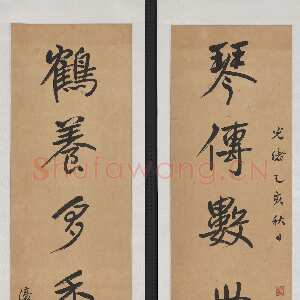 琴傳數世
光緒乙亥秋日
鶴養多
Shufawang.cn